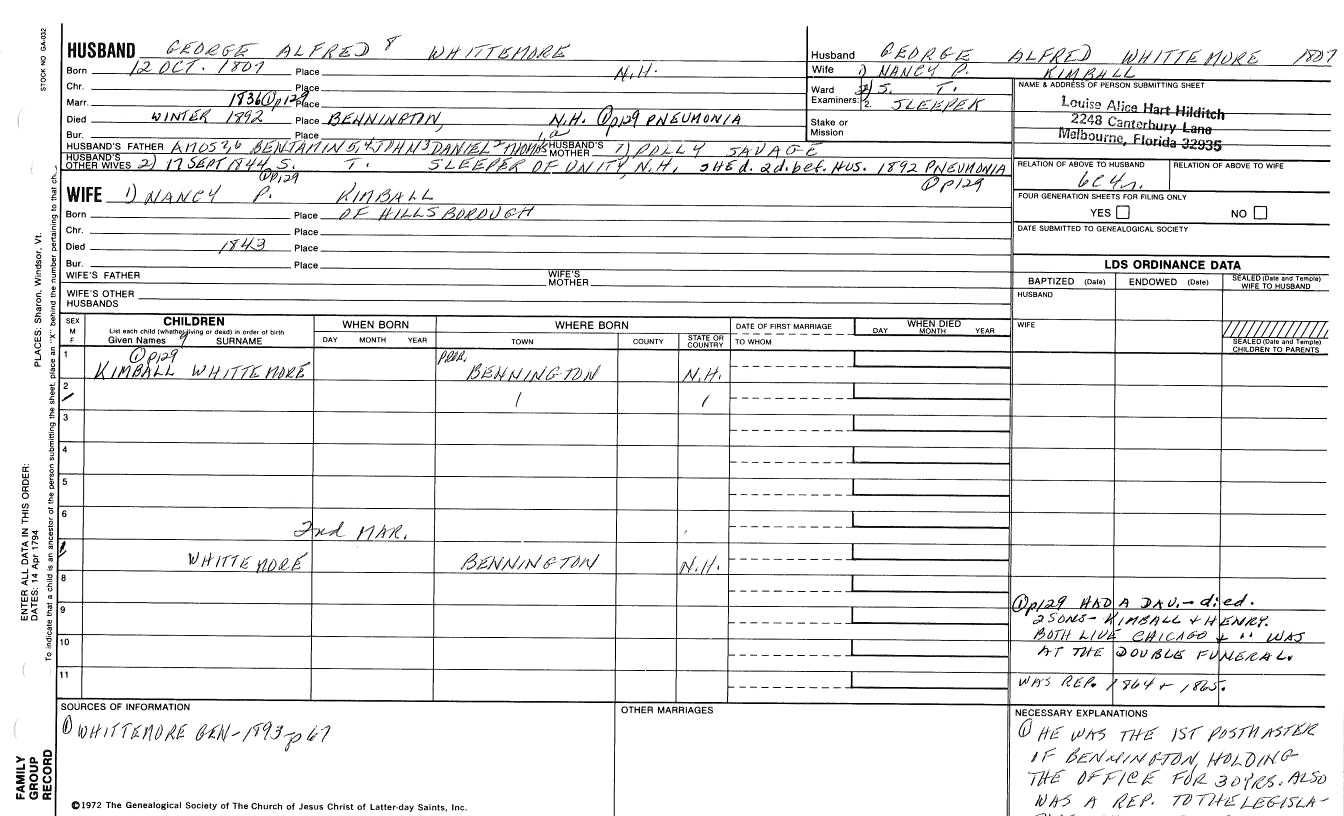 STOCK NO. GA-032
HUSBAND GEORGE ALFRED 8 WHITTEMORE
Born 12 OCT. 1807 Place N.H.
Chr. Place
Marr. 1836 ①p129 Place
Died WINTER 1892 Place BENNINGTON, N.H. ①p129 PNEUMONIA
Bur. Place
HUSBAND'S FATHER AMOS 7,6 BENJAMIN 5,4 JOHN 3 DANIEL 2 THOMAS HUSBAND'S MOTHER 1) POLLY SAVAGE
HUSBAND'S OTHER WIVES 2) 17 SEPT 1844 S. T. SLEEPER OF UNITY, N.H. SHE d. 2d. bef. HUS. 1892 PNEUMONIA
①p129 ①p129
WIFE 1) NANCY P. KIMBALL
Born Place OF HILLSBOROUGH
Chr. Place
Died 1843 Place
Bur. Place
WIFE'S FATHER WIFE'S MOTHER
WIFE'S OTHER HUSBANDS
Husband GEORGE ALFRED WHITTEMORE 1807
Wife 1) NANCY P. KIMBALL
Ward 2) S. T.
Examiners: 2. SLEEPER
Stake or Mission
NAME & ADDRESS OF PERSON SUBMITTING SHEET
Louise Alice Hart Hilditch
2248 Canterbury Lane
Melbourne, Florida 32935
RELATION OF ABOVE TO HUSBAND RELATION OF ABOVE TO WIFE
6C4r.
FOUR GENERATION SHEETS FOR FILING ONLY
YES NO
DATE SUBMITTED TO GENEALOGICAL SOCIETY
LDS ORDINANCE DATA
BAPTIZED (Date) ENDOWED (Date) SEALED (Date and Temple) WIFE TO HUSBAND
HUSBAND
WIFE
SEALED (Date and Temple) CHILDREN TO PARENTS
SEX M F CHILDREN WHEN BORN WHERE BORN DATE OF FIRST MARRIAGE WHEN DIED
List each child (whether living or dead) in order of birth
Given Names SURNAME DAY MONTH YEAR TOWN COUNTY STATE OR COUNTRY TO WHOM DAY MONTH YEAR
1 ①p129 PROB.
KIMBALL 9 WHITTEMORE BENNINGTON N.H.
2
3
4
5
6
2nd MAR.
WHITTEMORE BENNINGTON N.H.
8
9
10
11
①p129 HAD A DAU.- died.
2 SONS- KIMBALL + HENRY.
BOTH LIVE CHICAGO + " WAS
AT THE DOUBLE FUNERAL.
WAS REP. 1864 + 1865.
SOURCES OF INFORMATION
① WHITTEMORE GEN-1893-p67
OTHER MARRIAGES
NECESSARY EXPLANATIONS
① HE WAS THE 1ST POSTMASTER
OF BENNINGTON, HOLDING
THE OFFICE FOR 30 YRS. ALSO
WAS A REP. TO THE LEGISLA-
©1972 The Genealogical Society of The Church of Jesus Christ of Latter-day Saints, Inc.
FAMILY GROUP RECORD
ENTER ALL DATA IN THIS ORDER:
DATES: 14 Apr 1794
PLACES: Sharon, Windsor, Vt.
To indicate that a child is an ancestor of the person submitting the sheet, place an "X" behind the number pertaining to that ch.